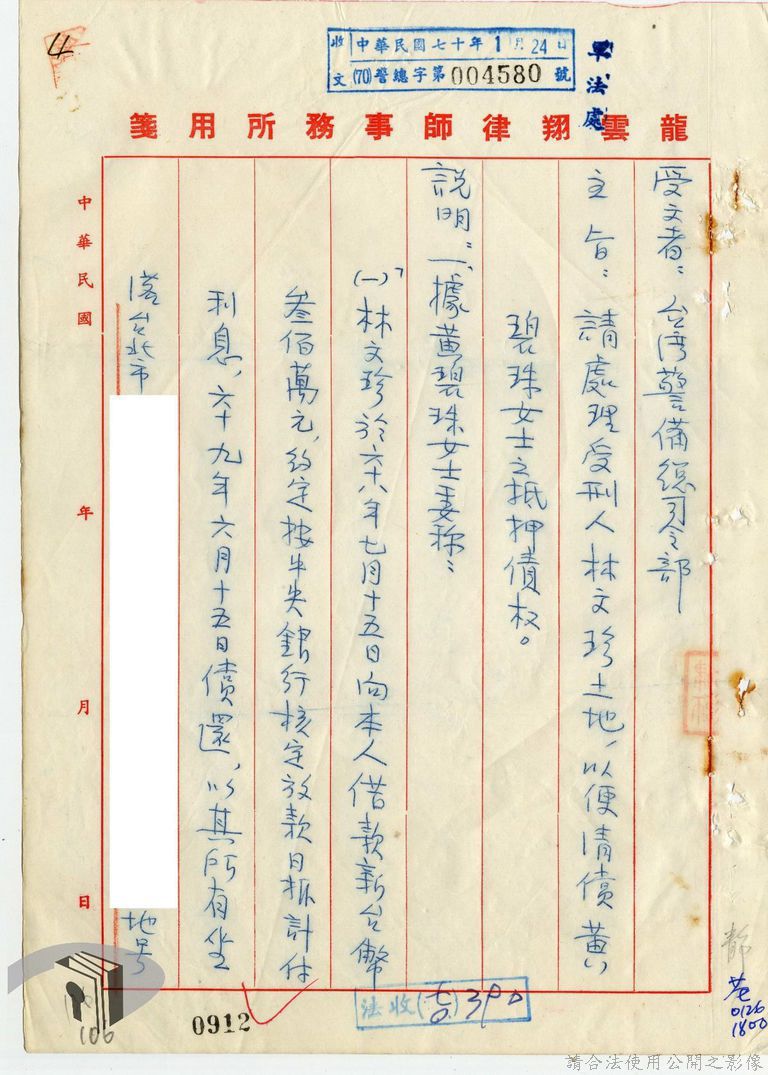 4
收文 中華民國七十年1月24日
(70)警總字第004580號
軍法處
龍雲翔律師事務所用箋
受文者：台湾警備総司令部
主旨：請處理受刑人林文珍土地，以便清償黃
碧珠女士之抵押債权。
説明：一、據黃碧珠女士委称：
(一)林文珍於六十八年七月十五日向本人借款新台幣
叁佰萬元，約定按中央銀行核定放款日拆計付
利息，六十九年六月十五日償還，以其所有坐
落台北市
地号
中華民國 年 月 日
法收(70)390
0912
106
0126
1800
請合法使用公開之影像